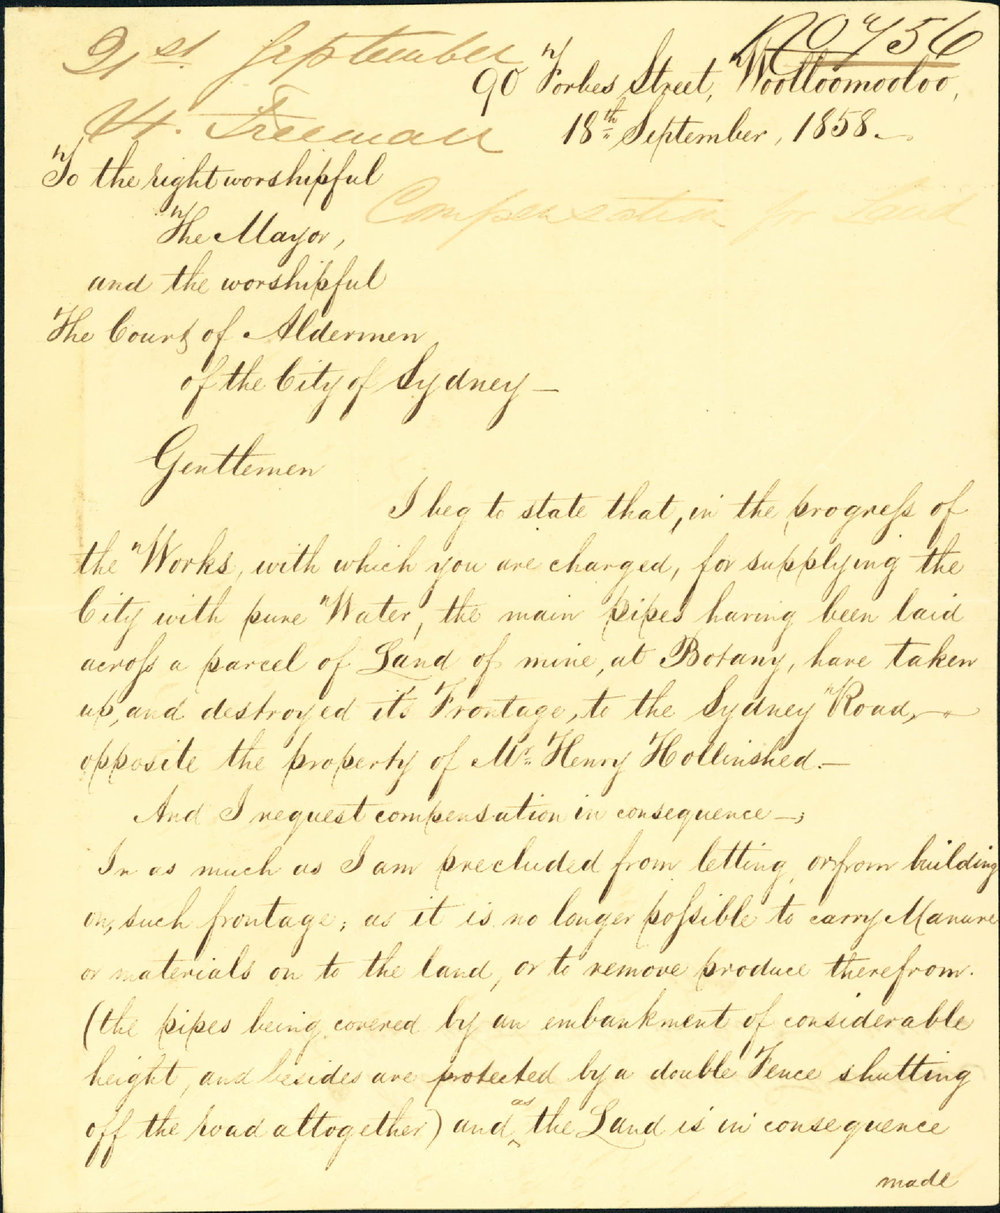 No 756
21st September
90 Forbes Street, Woolloomooloo,
H. Freeman
18th September, 1858.—
To the right worshipful
Compensation for Land
The Mayor,
and the worshipful
The Court of Aldermen
of the City of Sydney—
Gentlemen
I beg to state that, in the progress of
the Works, with which you are charged, for supplying the
City with pure Water, the main pipes having been laid
across a parcel of Land of mine, at Botany, have taken
up, and destroyed its Frontage, to the Sydney Road,—
opposite the property of Mr. Henry Hollinshed.—
And I request compensation in consequence—;
In as much as I am precluded from letting, or from building
on, such frontage; as it is no longer possible to carry Manure
or materials on to the land, or to remove produce therefrom.
(the pipes being covered by an embankment of considerable
height, and besides are protected by a double Fence shutting
off the road altogether) and as the Land is in consequence
made